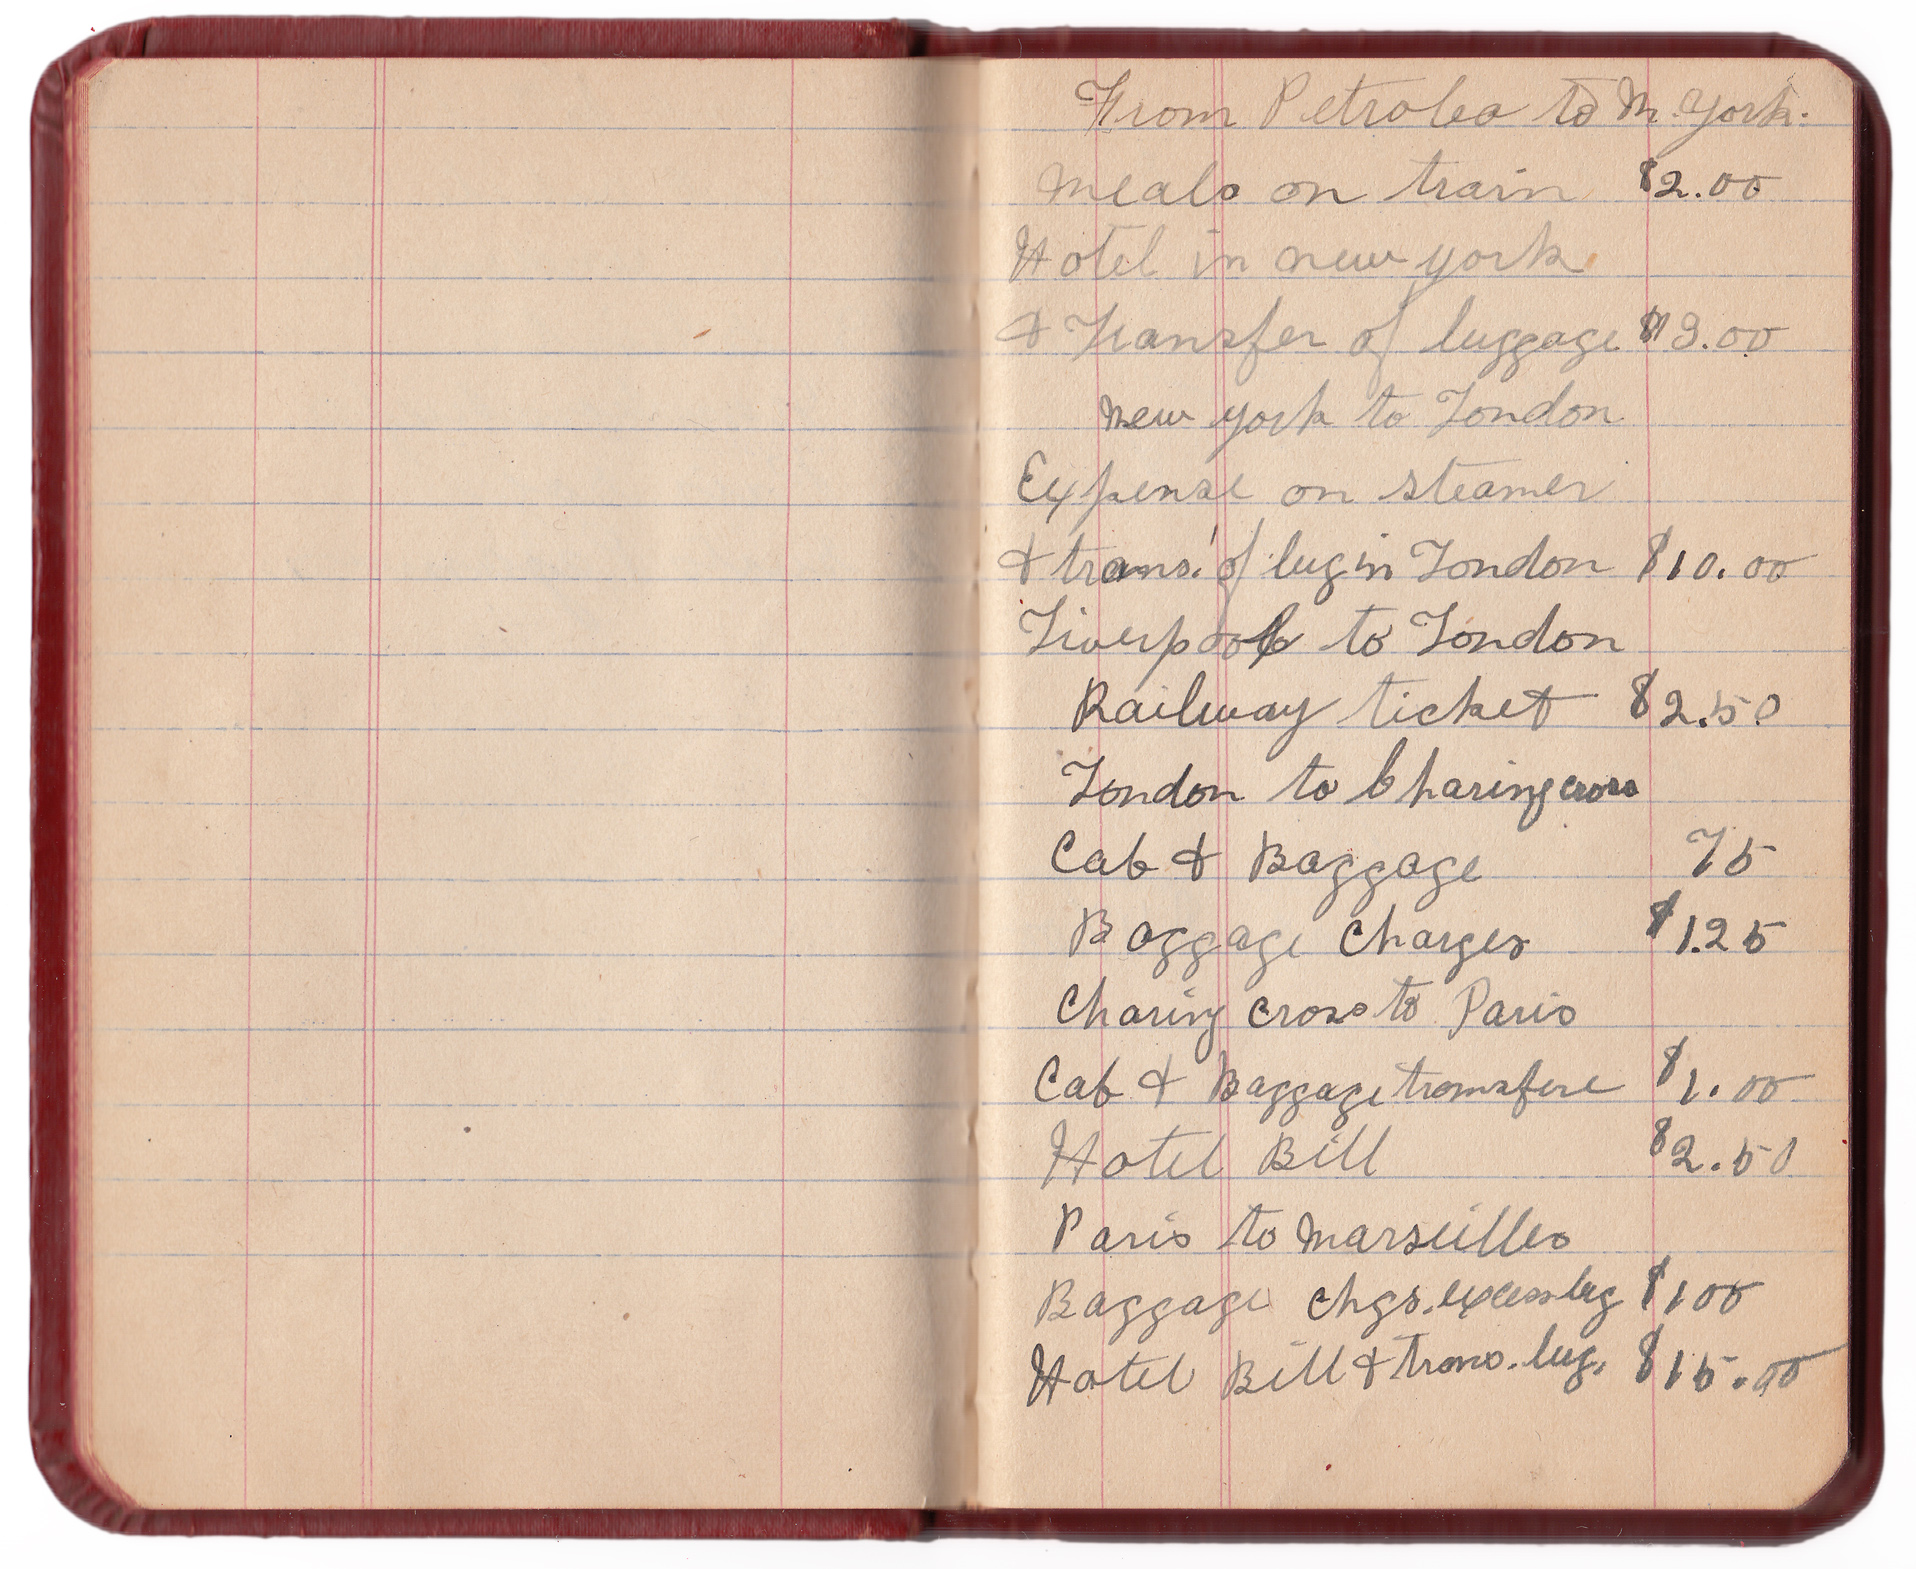 From Petrolea to N. York.
Meals on train $2.00
Hotel in new york
& Transfer of luggage $3.00
New york to London
Expense on steamer
& trans. of lug in London $10.00
Liverpool to London
Railway ticket $2.50
London to Charing cross
Cab & Baggage 75
Baggage Charges $1.25
Charing cross to Paris
Cab & Baggage transfere $1.00
Hotel Bill $2.50
Paris to Marseilles
Baggage chgs. excess lug $100
Hotel Bill & trans. lug. $15.00